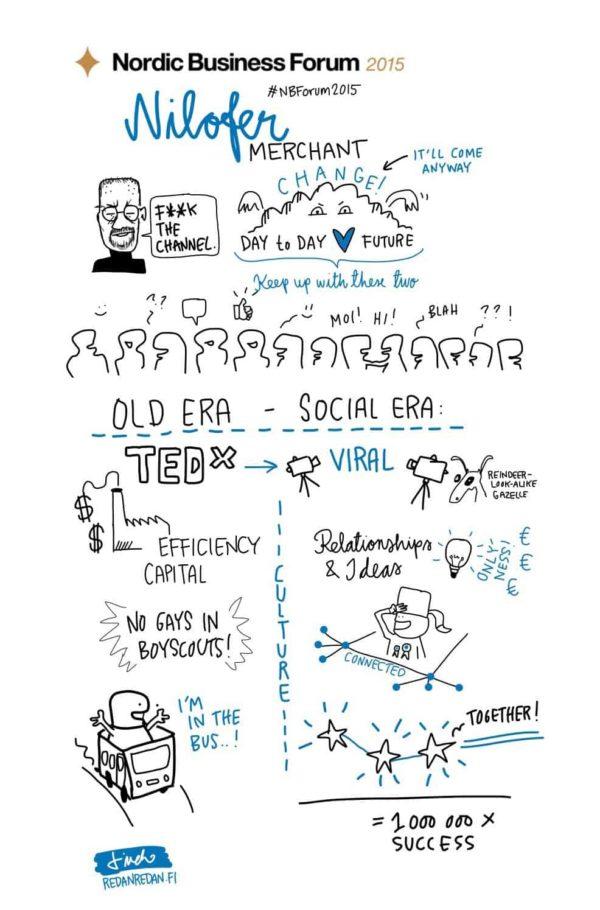 Nordic Business Forum 2015
#NBForum2015
Nilofer
MERCHANT
IT'LL COME
ANYWAY
CHANGE!
F**K
THE
CHANNEL.
DAY to DAY FUTURE
Keep up with these two
??
MOI! HI!
BLAH
??!
OLD ERA - SOCIAL ERA:
TEDX
VIRAL
REINDEER-
LOOK-ALIKE
GAZELLE
$
$
EFFICIENCY
CAPITAL
Relationships
& Ideas
ONLY
NESS!
€
€
€
CULTURE
NO GAYS IN
BOYSCOUTS!
CONNECTED
I'M
IN THE
BUS..!
TOGETHER!
= 1000 000 X
SUCCESS
REDANREDAN.FI